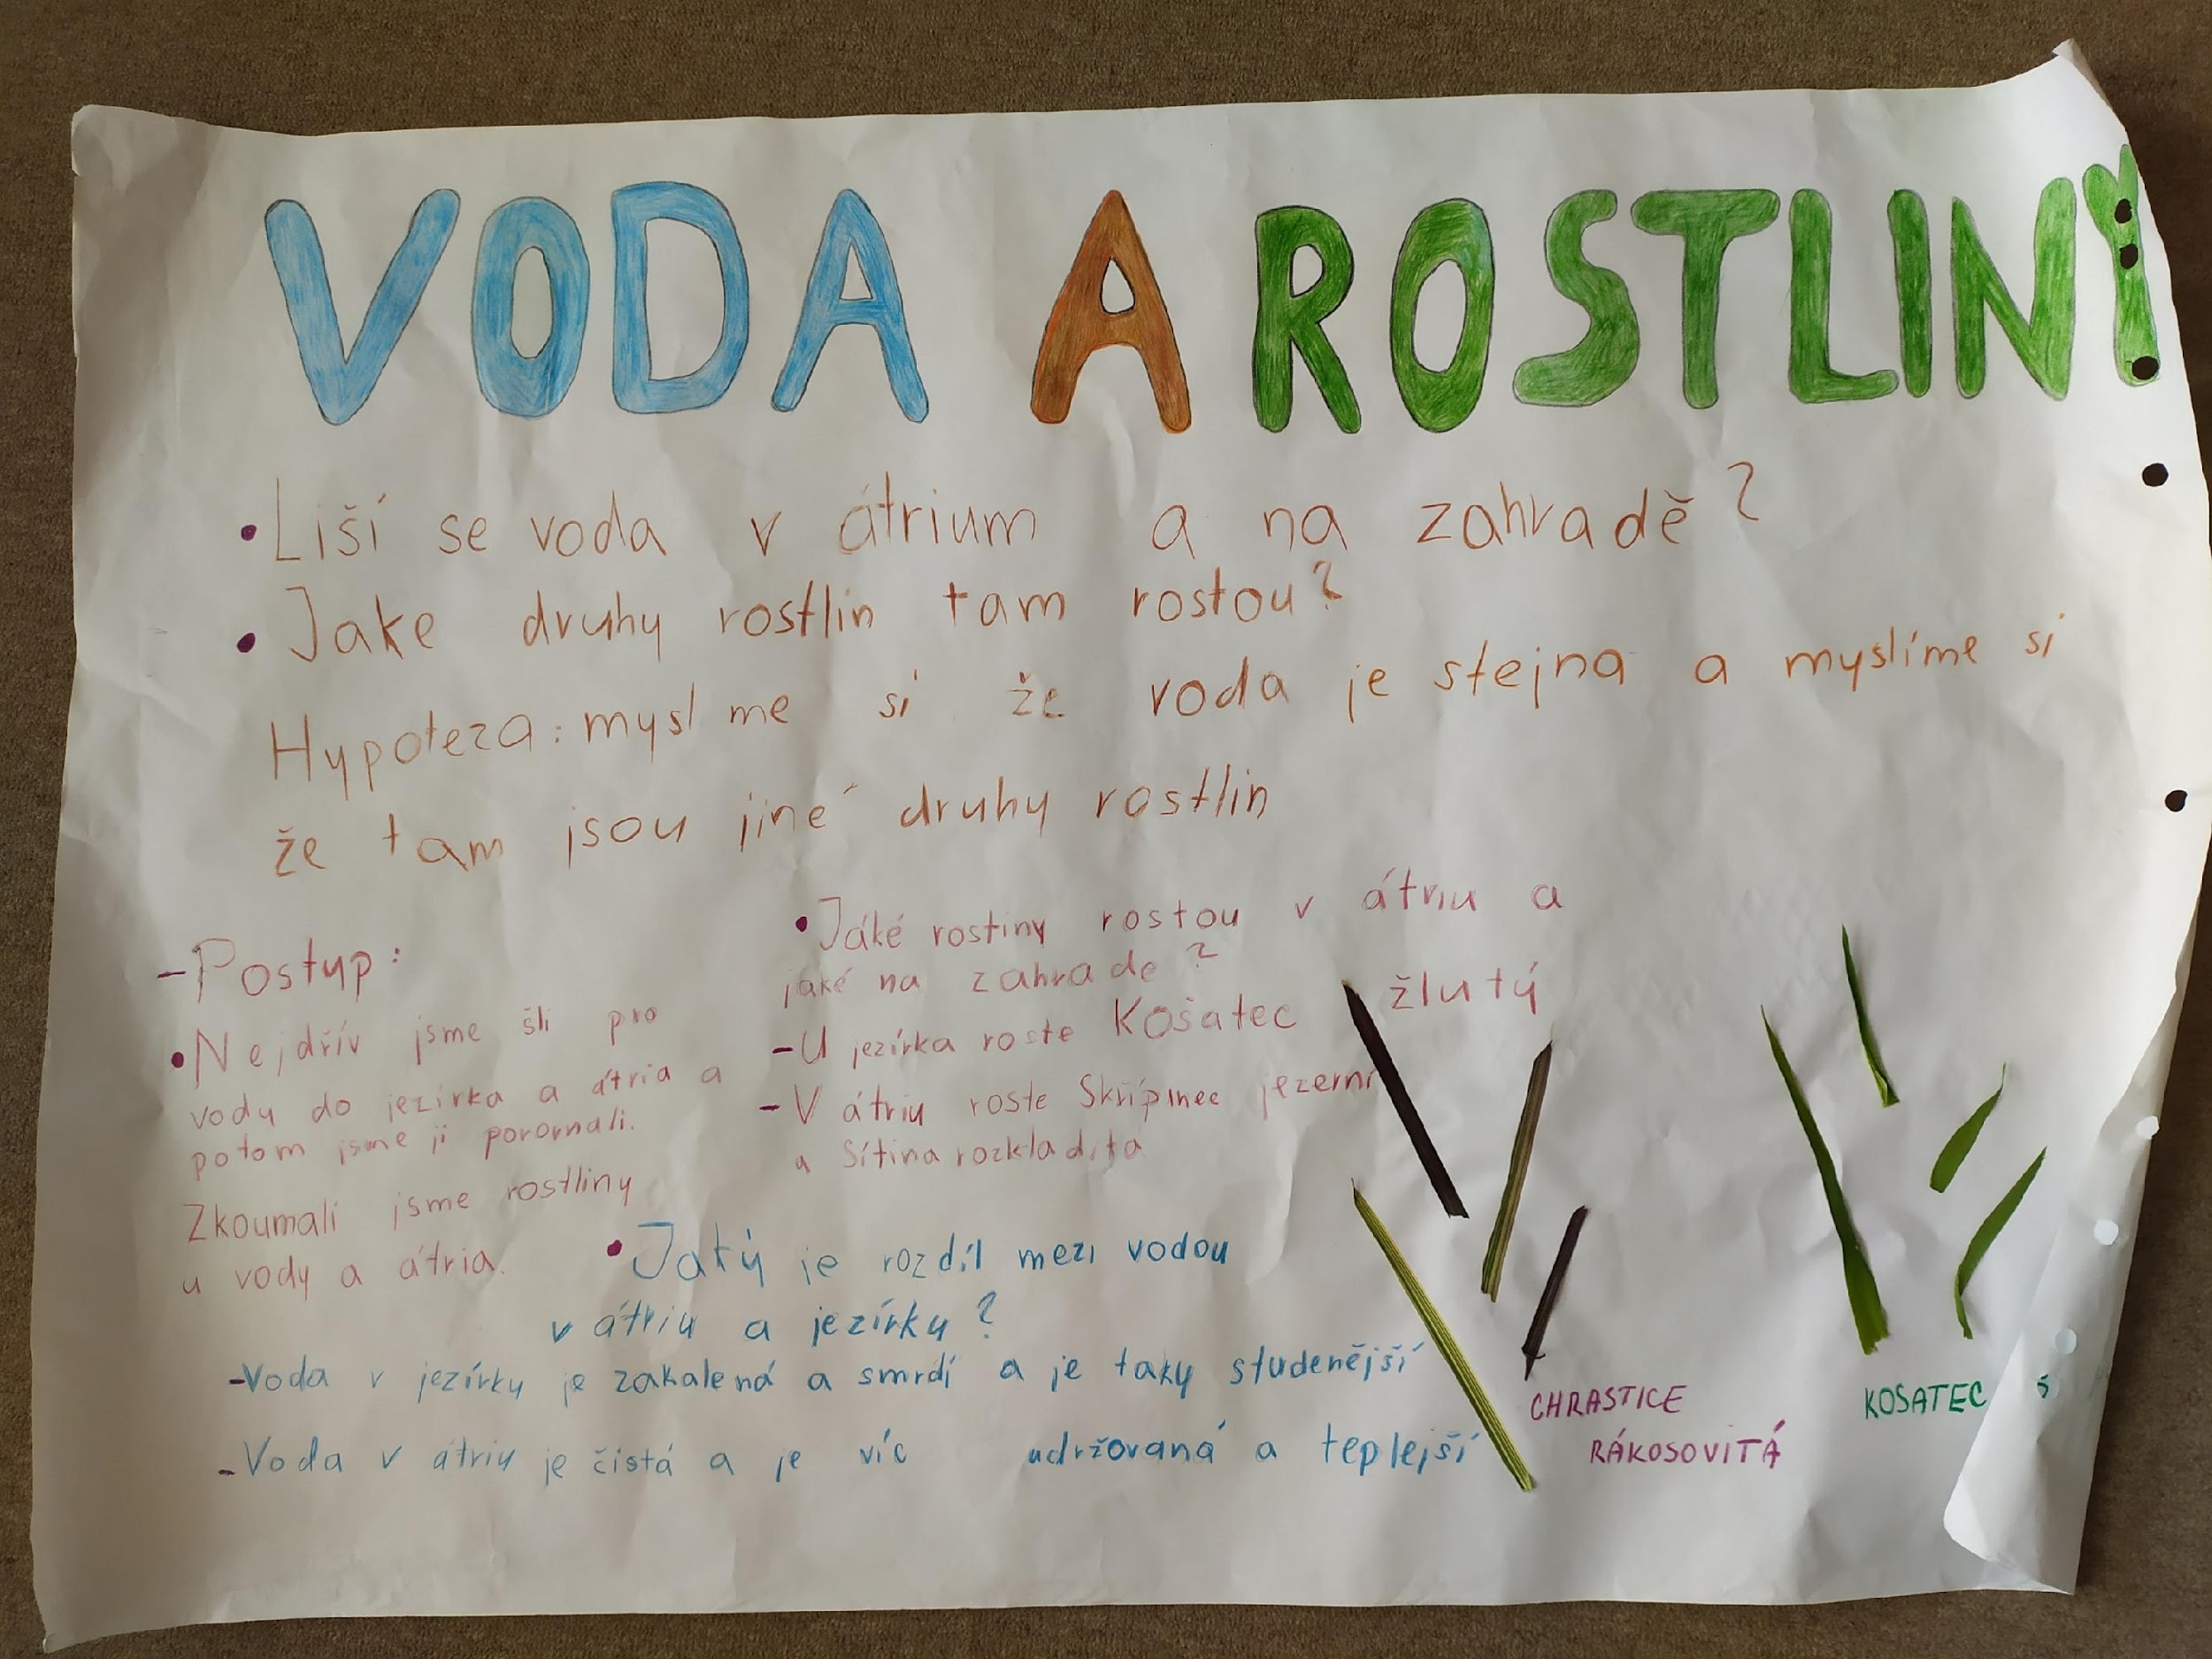 VODA A ROSTLINY
• Liší se voda v átrium a na zahradě?
• Jake druhy rostlin tam rostou?
Hypoteza: mysl me si že voda je stejna a myslíme si
že tam jsou jiné druhy rostlin
- Postup:
• Nejdřív jsme šli pro
vodu do jezírka a átria a
potom jsme ji porovnali.
Zkoumali jsme rostliny
u vody a átria.
• Jáké rostiny rostou v átriu a
jaké na zahrade?
- U jezírka roste Košatec žlutý
- V átriu roste Skřípinec jezerní
a Sítina rozkladita
• Jaký je rozdíl mezi vodou
v átriu a jezírku?
- Voda v jezírku je zakalená a smrdí a je taky studenější
- Voda v átriu je čistá a je víc udržovaná a teplejší
CHRASTICE
RÁKOSOVITÁ
KOSATEC